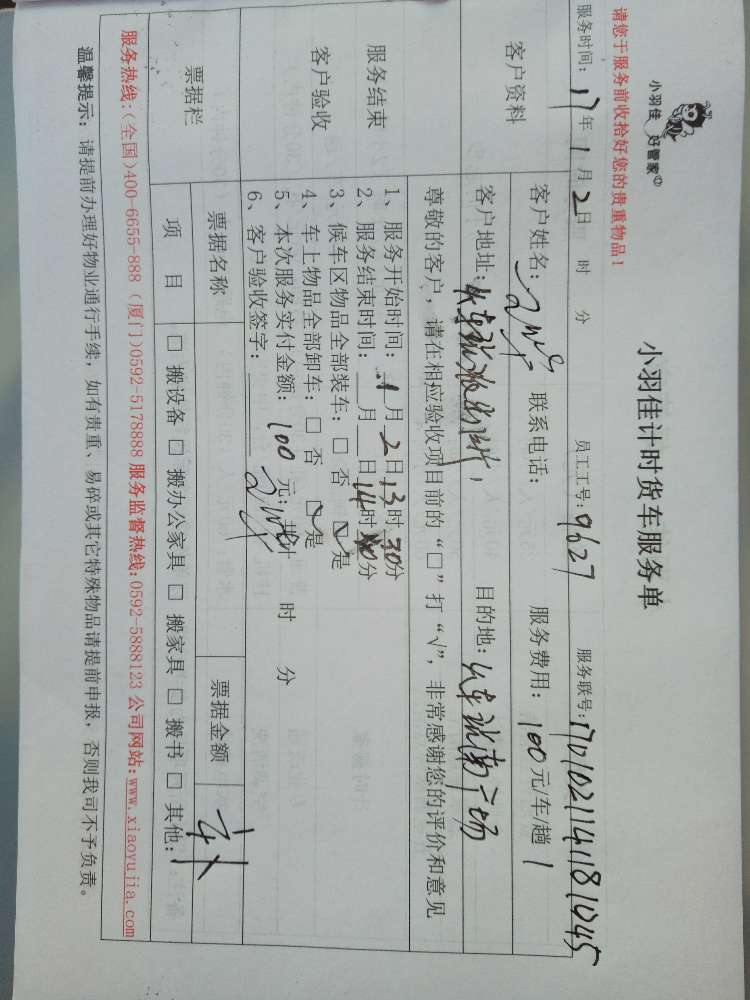 小羽佳 好管家
小羽佳计时货车服务单
请您于服务前收拾好您的贵重物品！
服务时间：17年1月2日 时 分 员工工号：9627 服务联号：1701021141181045
客户资料
客户姓名： 联系电话： 服务费用：100元/车/趟 1
客户地址：火车站 目的地：火车站南广场
服务结束
客户验收
尊敬的客户，请在相应验收项目前的“□”打“√”，非常感谢您的评价和意见
1、服务开始时间：1月2日13时30分
2、服务结束时间：__月__日14时40分
3、候车区物品全部装车：□ 否 ☑ 是
4、车上物品全部卸车：□ 否 ☑ 是
5、本次服务实付金额：100元；共计 时 分
6、客户验收签字：
票据栏
票据名称 票据金额
项 目 □ 搬设备 □ 搬办公家具 □ 搬家具 □ 搬书 □ 其他：
服务热线：(全国)400-6655-888 (厦门)0592-5178888 服务监督热线：0592-5888123 公司网站：www.xiaoyujia.com
温馨提示：请提前办理好物业通行手续，如有贵重、易碎或其它特殊物品请提前申报，否则我司不予负责。